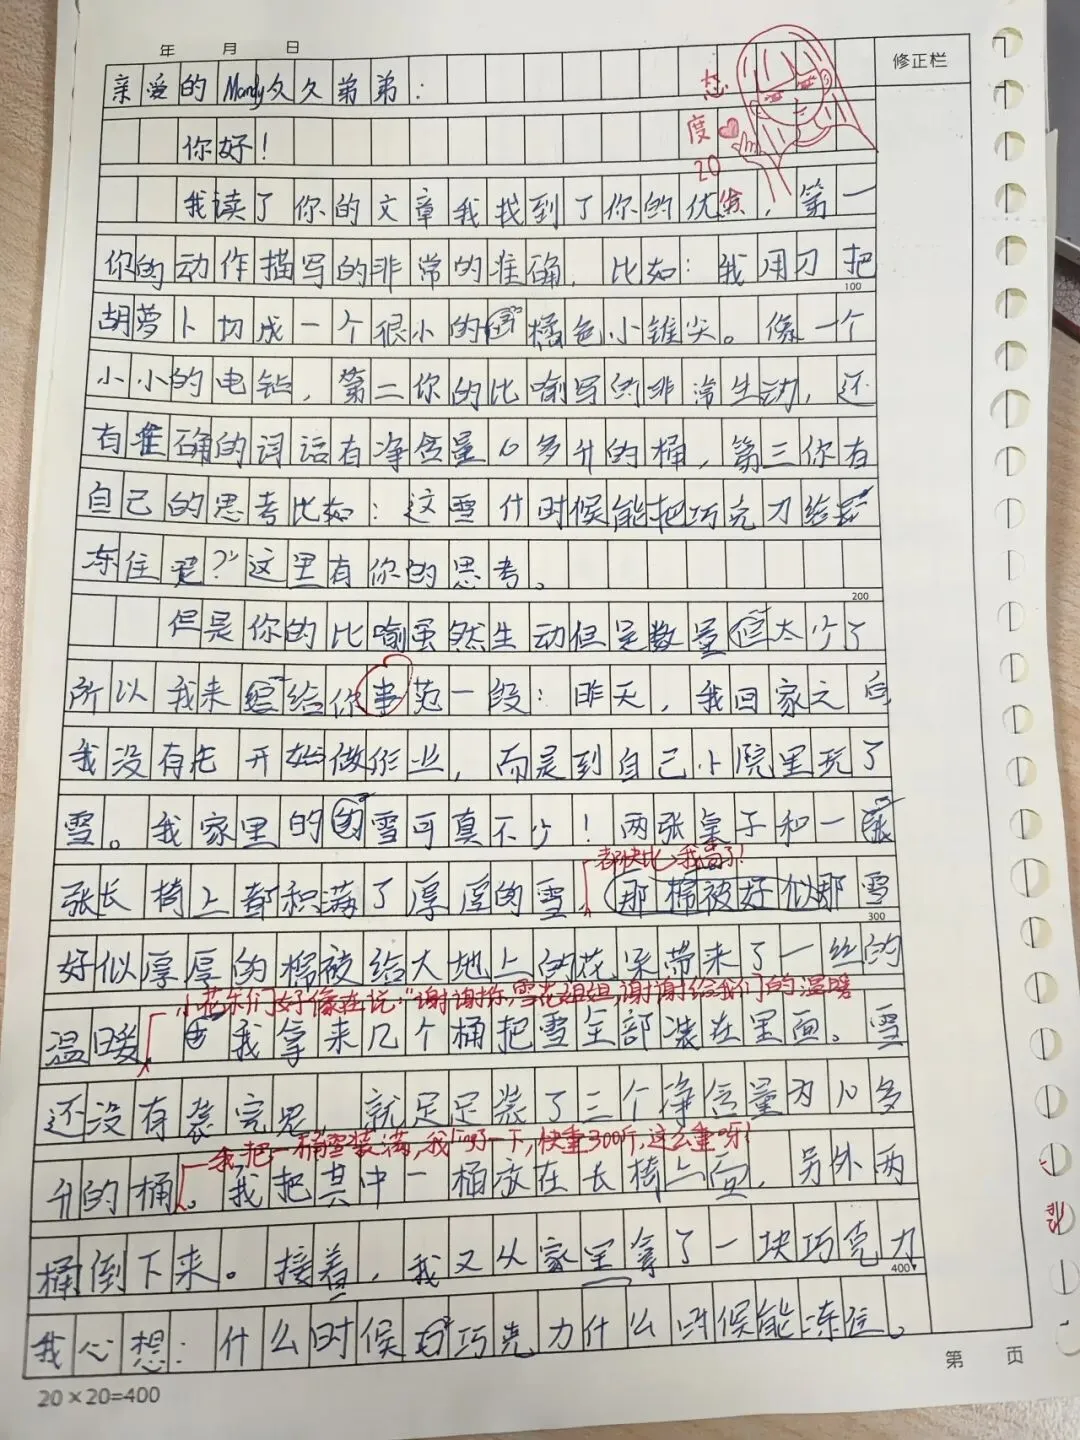 年 月 日
修正栏
亲爱的Mandy久久弟弟：
态度
20
你好！
我读了你的文章我找到了你的优点，第一
你的动作描写的非常的准确，比如：我用刀把
100
胡萝卜切成一个很小的橘色小锥尖。像一个
小小的电钻，第二你的比喻写的非常生动，还
有准确的词语有净含量10多升的桶，第三你有
自己的思考比如：这雪什时候能把巧克力给
冻住呢？”这里有你的思考。
200
但是你的比喻虽然生动但是数量太少了
所以我来给你示范一段：昨天，我回家之后
我没有先开始做作业，而是到自己小院里玩了
雪。我家里的雪可真不少！两张桌子和一
都快比我高了！
张长椅上都积满了厚厚的雪，那棉被好似那雪
300
好似厚厚的棉被给大地上的花朵带来了一丝的
小花朵们好像在说：“谢谢你，雪花姐姐，谢谢给我们的温暖
温暖，我拿来几个桶把雪全部装在里面。雪
还没有装完呢，就足足装了三个净含量为10多
我把一桶雪装满，我了一下，快重300斤，这么重呀！
升的桶。我把其中一桶放在长椅上面，另外两
桶倒下来。接着，我又从家里拿了一块巧克力
400
我心想：什么时候巧克力什么时候能冻住。
第 页
20×20=400